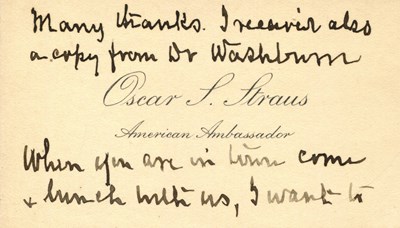 Many thanks. I received also
a copy from Dr Washburn
Oscar S. Straus
American Ambassador
When you are in town come
& lunch with us, I want to